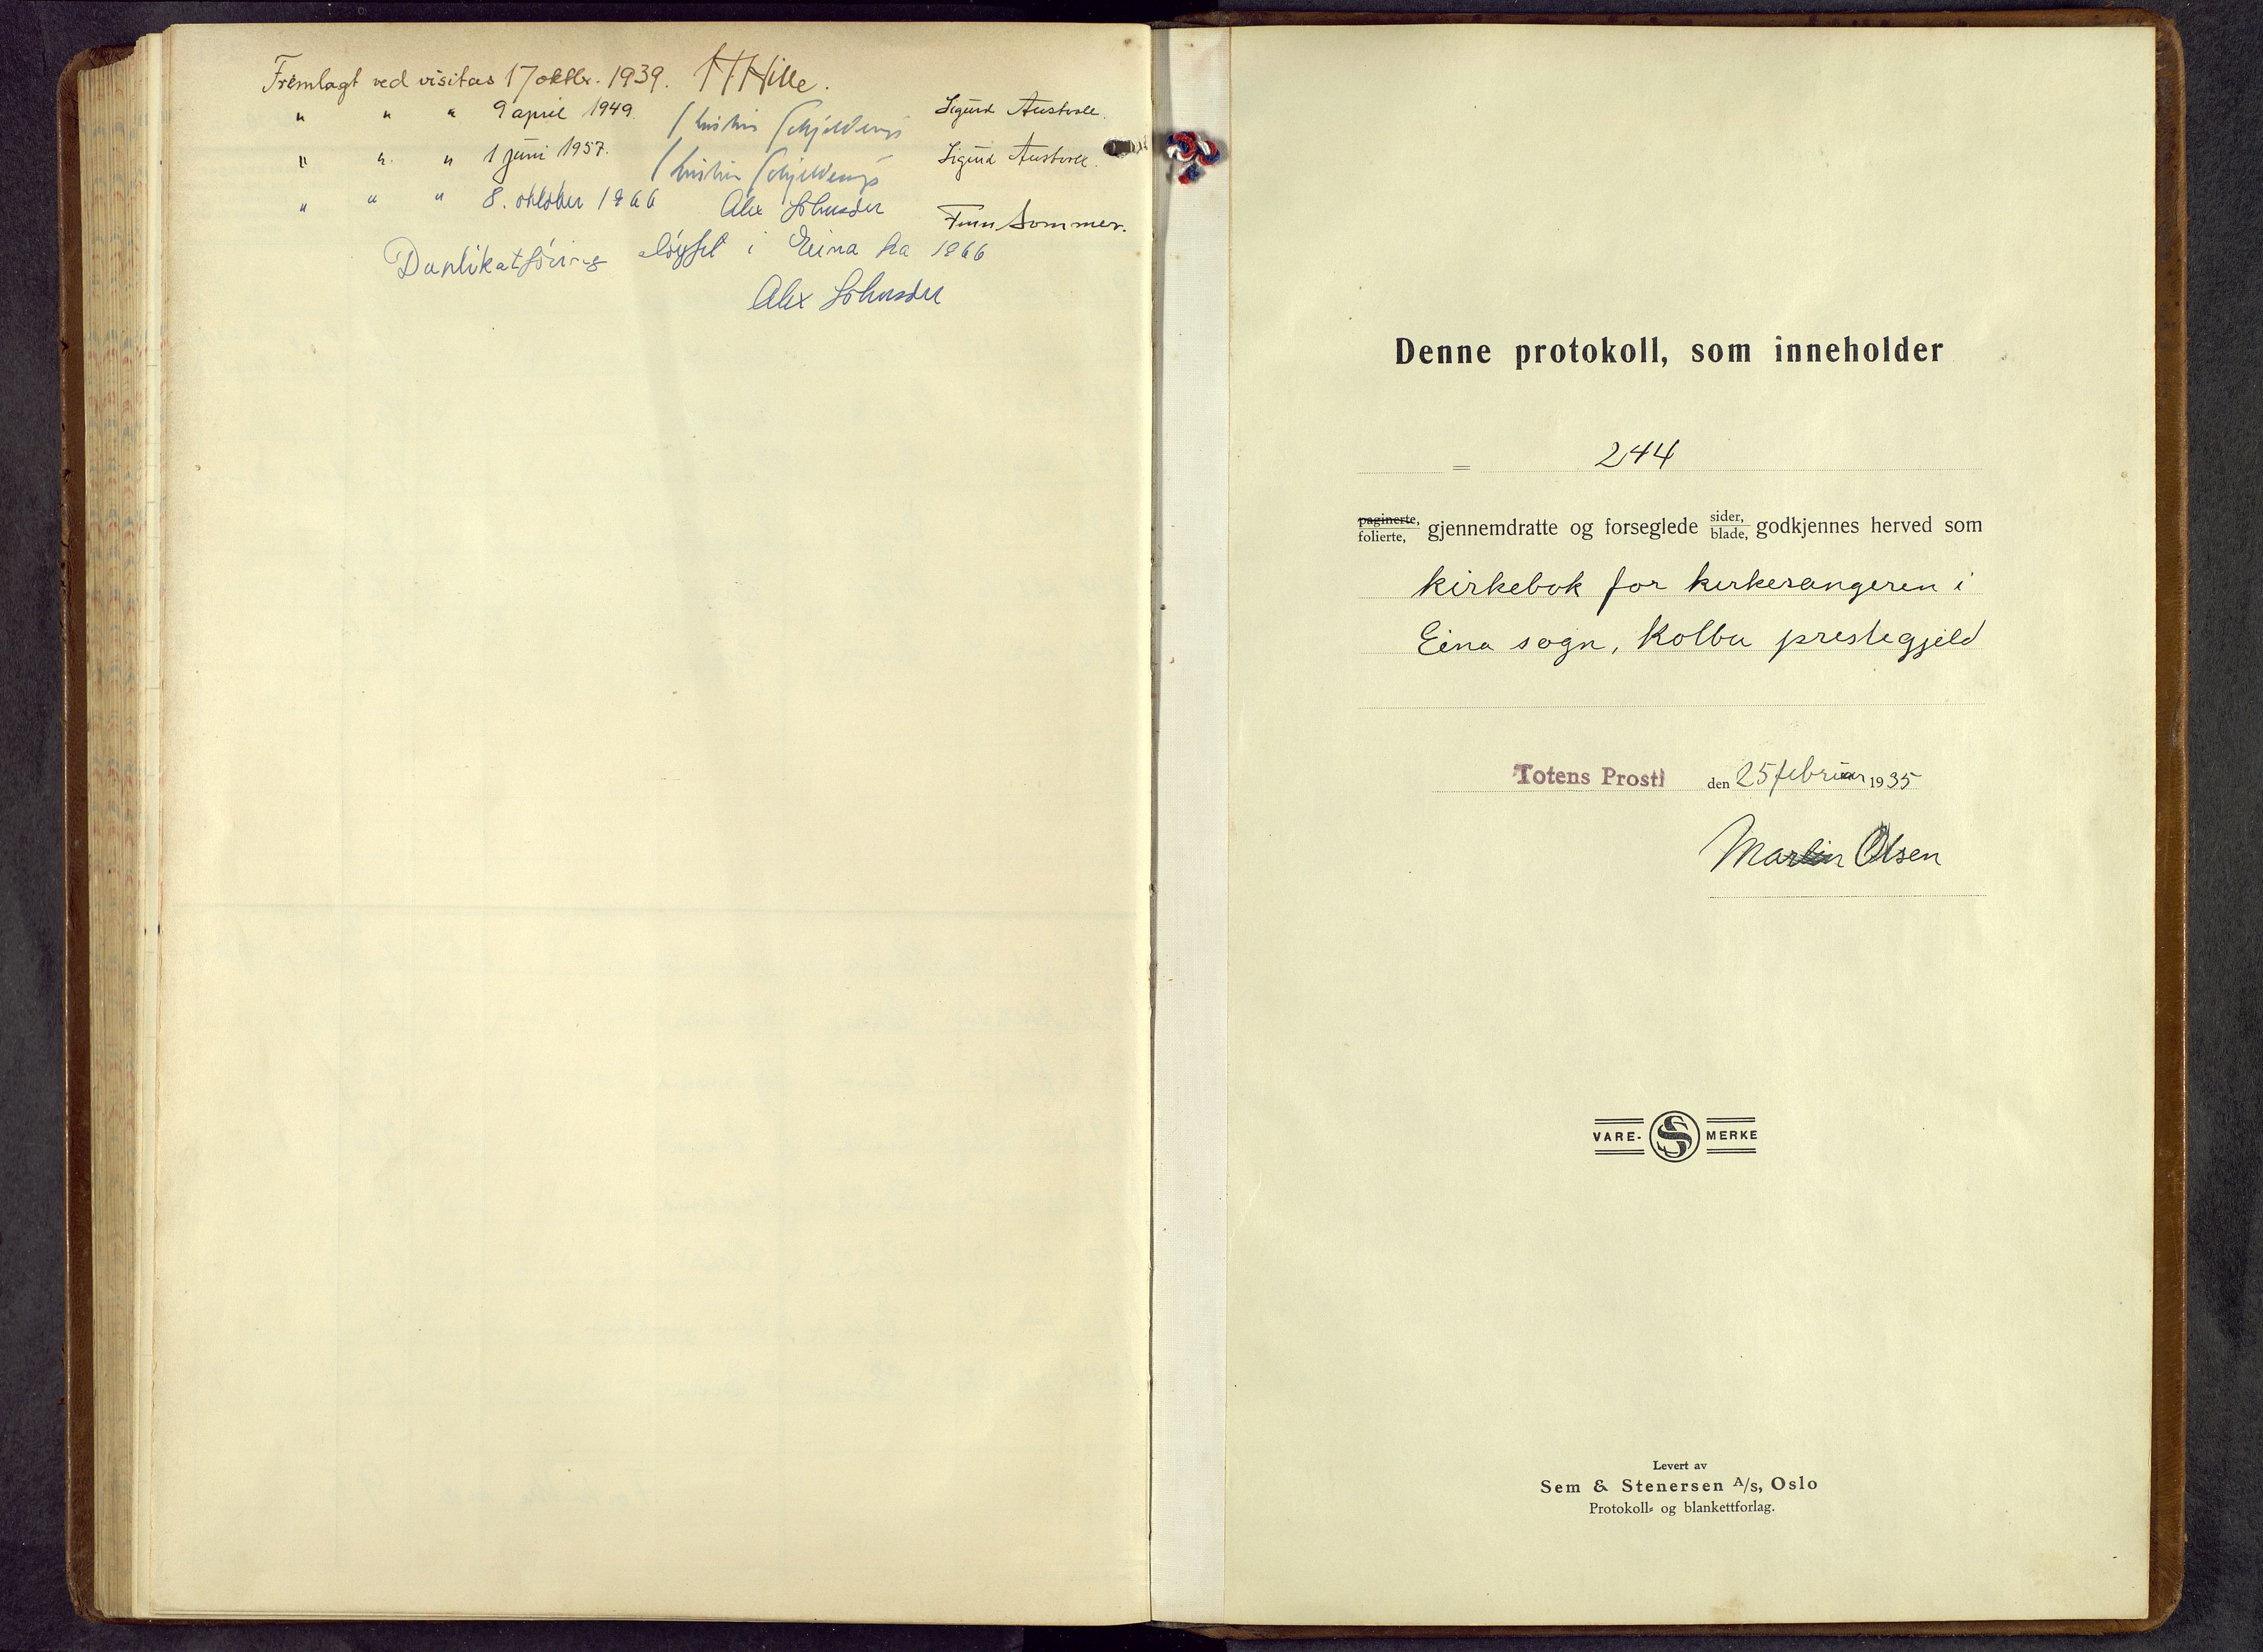 Fremlagt ved visitas 17 oktbr. 1939. HHille.
" " " 9 april 1949. Kristian Schjelderup Sigurd
" " " 1 juni 1957. Kristian Schjelderup Sigurd
" " " 8. oktober 1966 Alex Johnson Finn Sommer.
Duplikatføring sløyfet i Eina fra 1966
Alex Johnson
Denne protokoll, som inneholder
= 244
paginerte, folierte, gjennemdratte og forseglede sider, blade, godkjennes herved som
kirkebok for kirkesangeren i
Eina sogn, Kolbu prestegjeld
Totens Prosti den 25 februar 1935
Martin Olsen
VARE- S MERKE
Levert av
Sem & Stenersen A/s, Oslo
Protokoll- og blankettforlag.